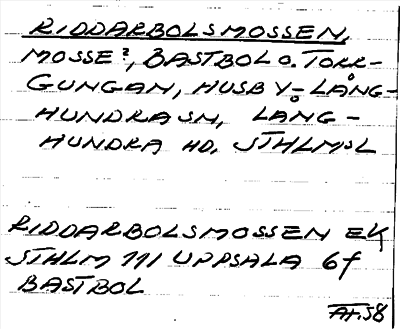 RIDDARBOLSMOSSEN,
MOSSE?, BASTBOL O. TORR-
GUNGAN, HUSBY-LÅNG-
HUNDRA SN, LÅNG-
HUNDRA HD, STHLMS L
RIDDARBOLSMOSSEN EK
STHLM 111 UPPSALA 6f
BASTBOL
AH.58